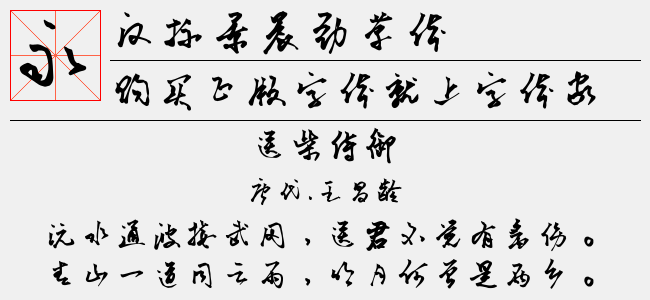 永
汉标晨劲草体
购买正版字体就上字体家
送柴侍御
唐代.王昌龄
沅水通波接武冈，送君不觉有离伤。
青山一道同云雨，明月何曾是两乡。